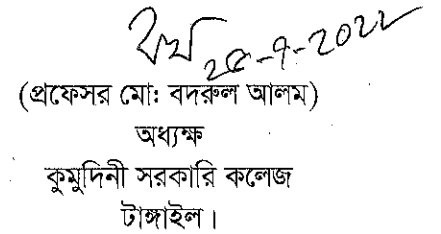 ২৫-৭-2022
(প্রফেসর মো: বদরুল আলম)
অধ্যক্ষ
কুমুদিনী সরকারি কলেজ
টাঙ্গাইল।